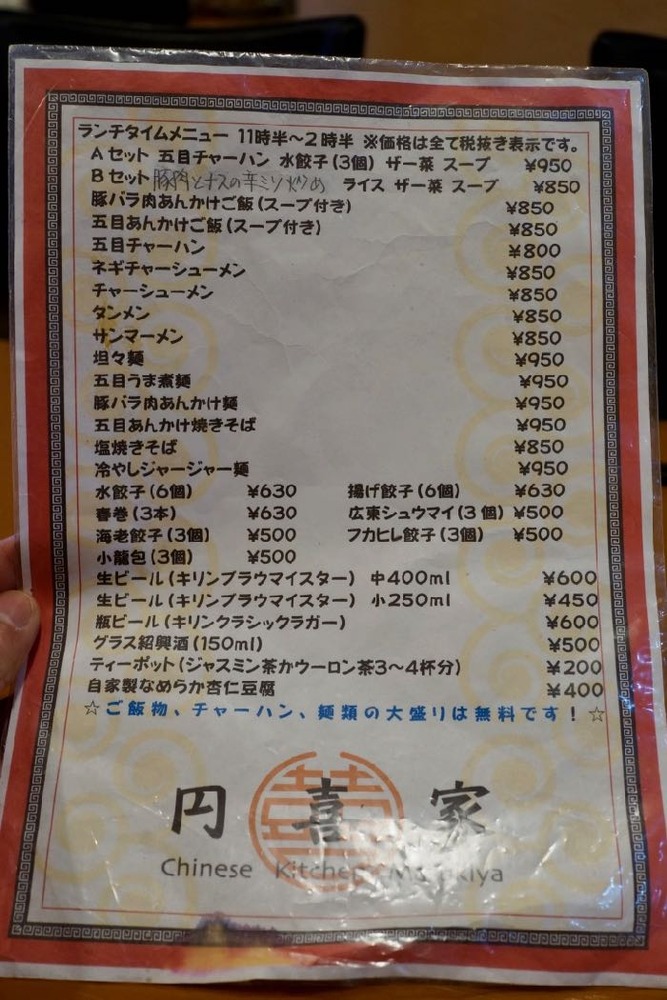 ランチタイムメニュー 11時半～2時半 ※価格は全て税抜き表示です。
Aセット 五目チャーハン 水餃子(3個) ザー菜 スープ ¥950
Bセット 豚肉とナスの辛ミソ炒め ライス ザー菜 スープ ¥850
豚バラ肉あんかけご飯(スープ付き) ¥850
五目あんかけご飯(スープ付き) ¥850
五目チャーハン ¥800
ネギチャーシューメン ¥850
チャーシューメン ¥850
タンメン ¥850
サンマーメン ¥850
坦々麺 ¥950
五目うま煮麺 ¥950
豚バラ肉あんかけ麺 ¥950
五目あんかけ焼きそば ¥950
塩焼きそば ¥850
冷やしジャージャー麺 ¥950
水餃子(6個) ¥630 揚げ餃子(6個) ¥630
春巻(3本) ¥630 広東シュウマイ(3個) ¥500
海老餃子(3個) ¥500 フカヒレ餃子(3個) ¥500
小籠包(3個) ¥500
生ビール(キリンブラウマイスター) 中400ml ¥600
生ビール(キリンブラウマイスター) 小250ml ¥450
瓶ビール(キリンクラシックラガー) ¥600
グラス紹興酒(150ml) ¥500
ティーポット(ジャスミン茶かウーロン茶3～4杯分) ¥200
自家製なめらか杏仁豆腐 ¥400
☆ご飯物、チャーハン、麺類の大盛りは無料です！☆
円喜家
Chinese Kitchen